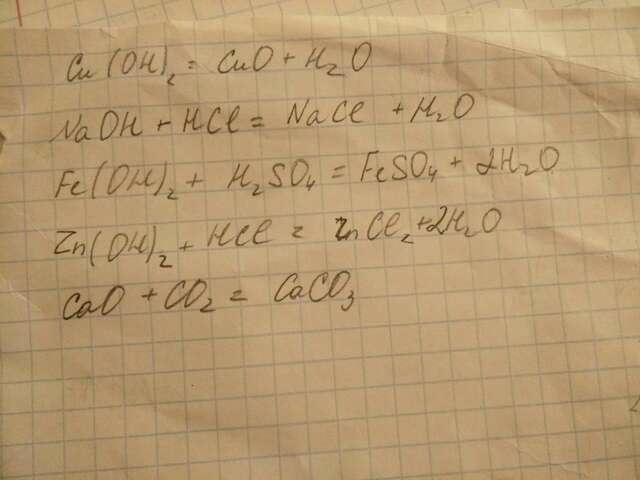 Cu(OH)₂ = CuO + H₂O
NaOH + HCl = NaCl + H₂O
Fe(OH)₂ + H₂SO₄ = FeSO₄ + 2H₂O
Zn(OH)₂ + HCl = ZnCl₂ + 2H₂O
CaO + CO₂ = CaCO₃